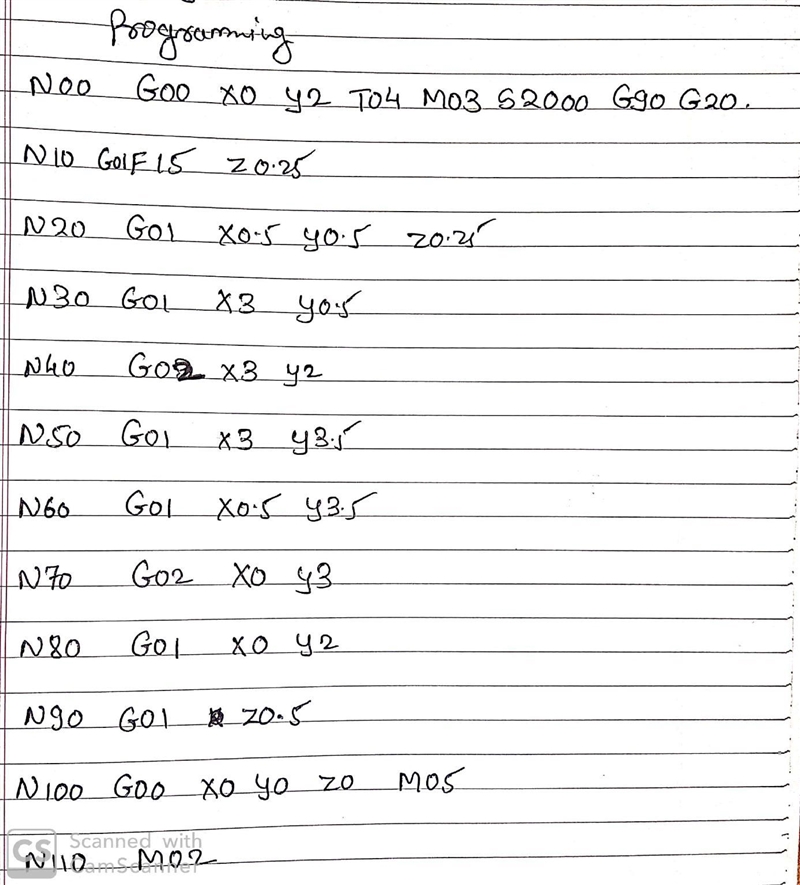 Programming
N00 G00 X0 y2 T04 M03 S2000 G90 G20.
N10 G01F15 Z0.25
N20 G01 X0.5 y0.5 Z0.25
N30 G01 X3 y0.5
N40 G02 X3 y2
N50 G01 X3 y3.5
N60 G01 X0.5 y3.5
N70 G02 X0 y3
N80 G01 X0 y2
N90 G01 Z0.5
N100 G00 X0 y0 Z0 M05
CS Scanned with
CamScanner
N110 M02